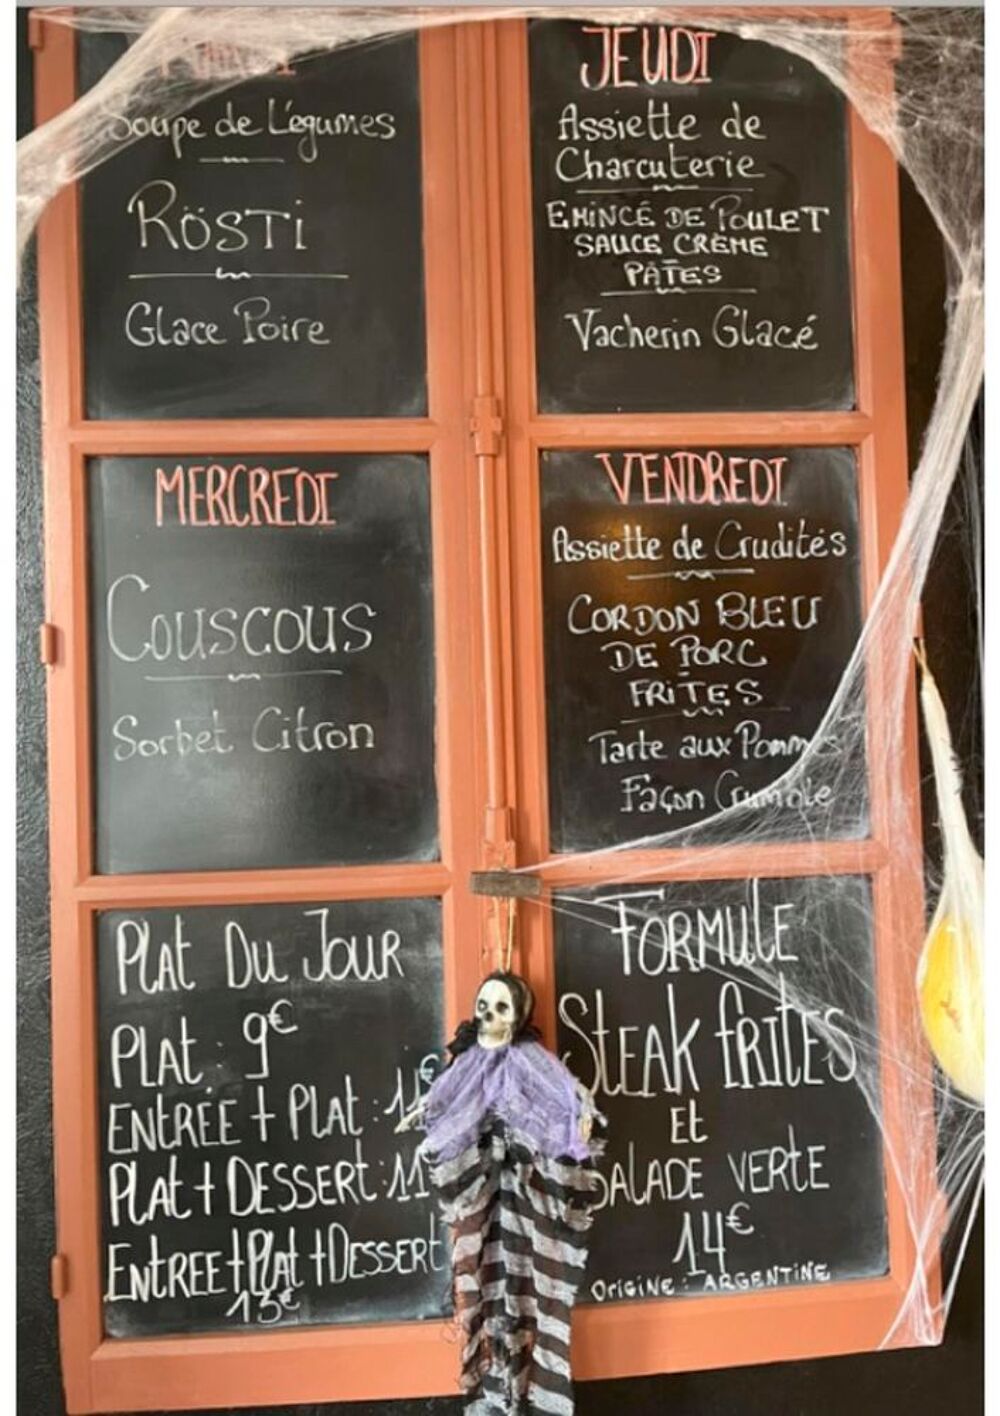 MARDI
Soupe de Légumes
RÖSTi
Glace Poire
MERCREDI
Couscous
Sorbet Citron
PLAT DU JOUR
PLAT : 9€
ENTRÉE + PLAT : 11€
PLAT + DESSERT : 11€
ENTREE + PLAT + DESSERT
13€
JEUDI
Assiette de
Charcuterie
EMINCÉ DE POULET
SAUCE CRÈME
PÂTES
Vacherin Glacé
VENDREDI
Assiette de Crudités
CORDON BLEU
DE PORC
FRITES
Tarte aux Pommes
Façon Crumble
FORMULE
STEAK FRITES
ET
SALADE VERTE
14€
ORIGINE : ARGENTINE